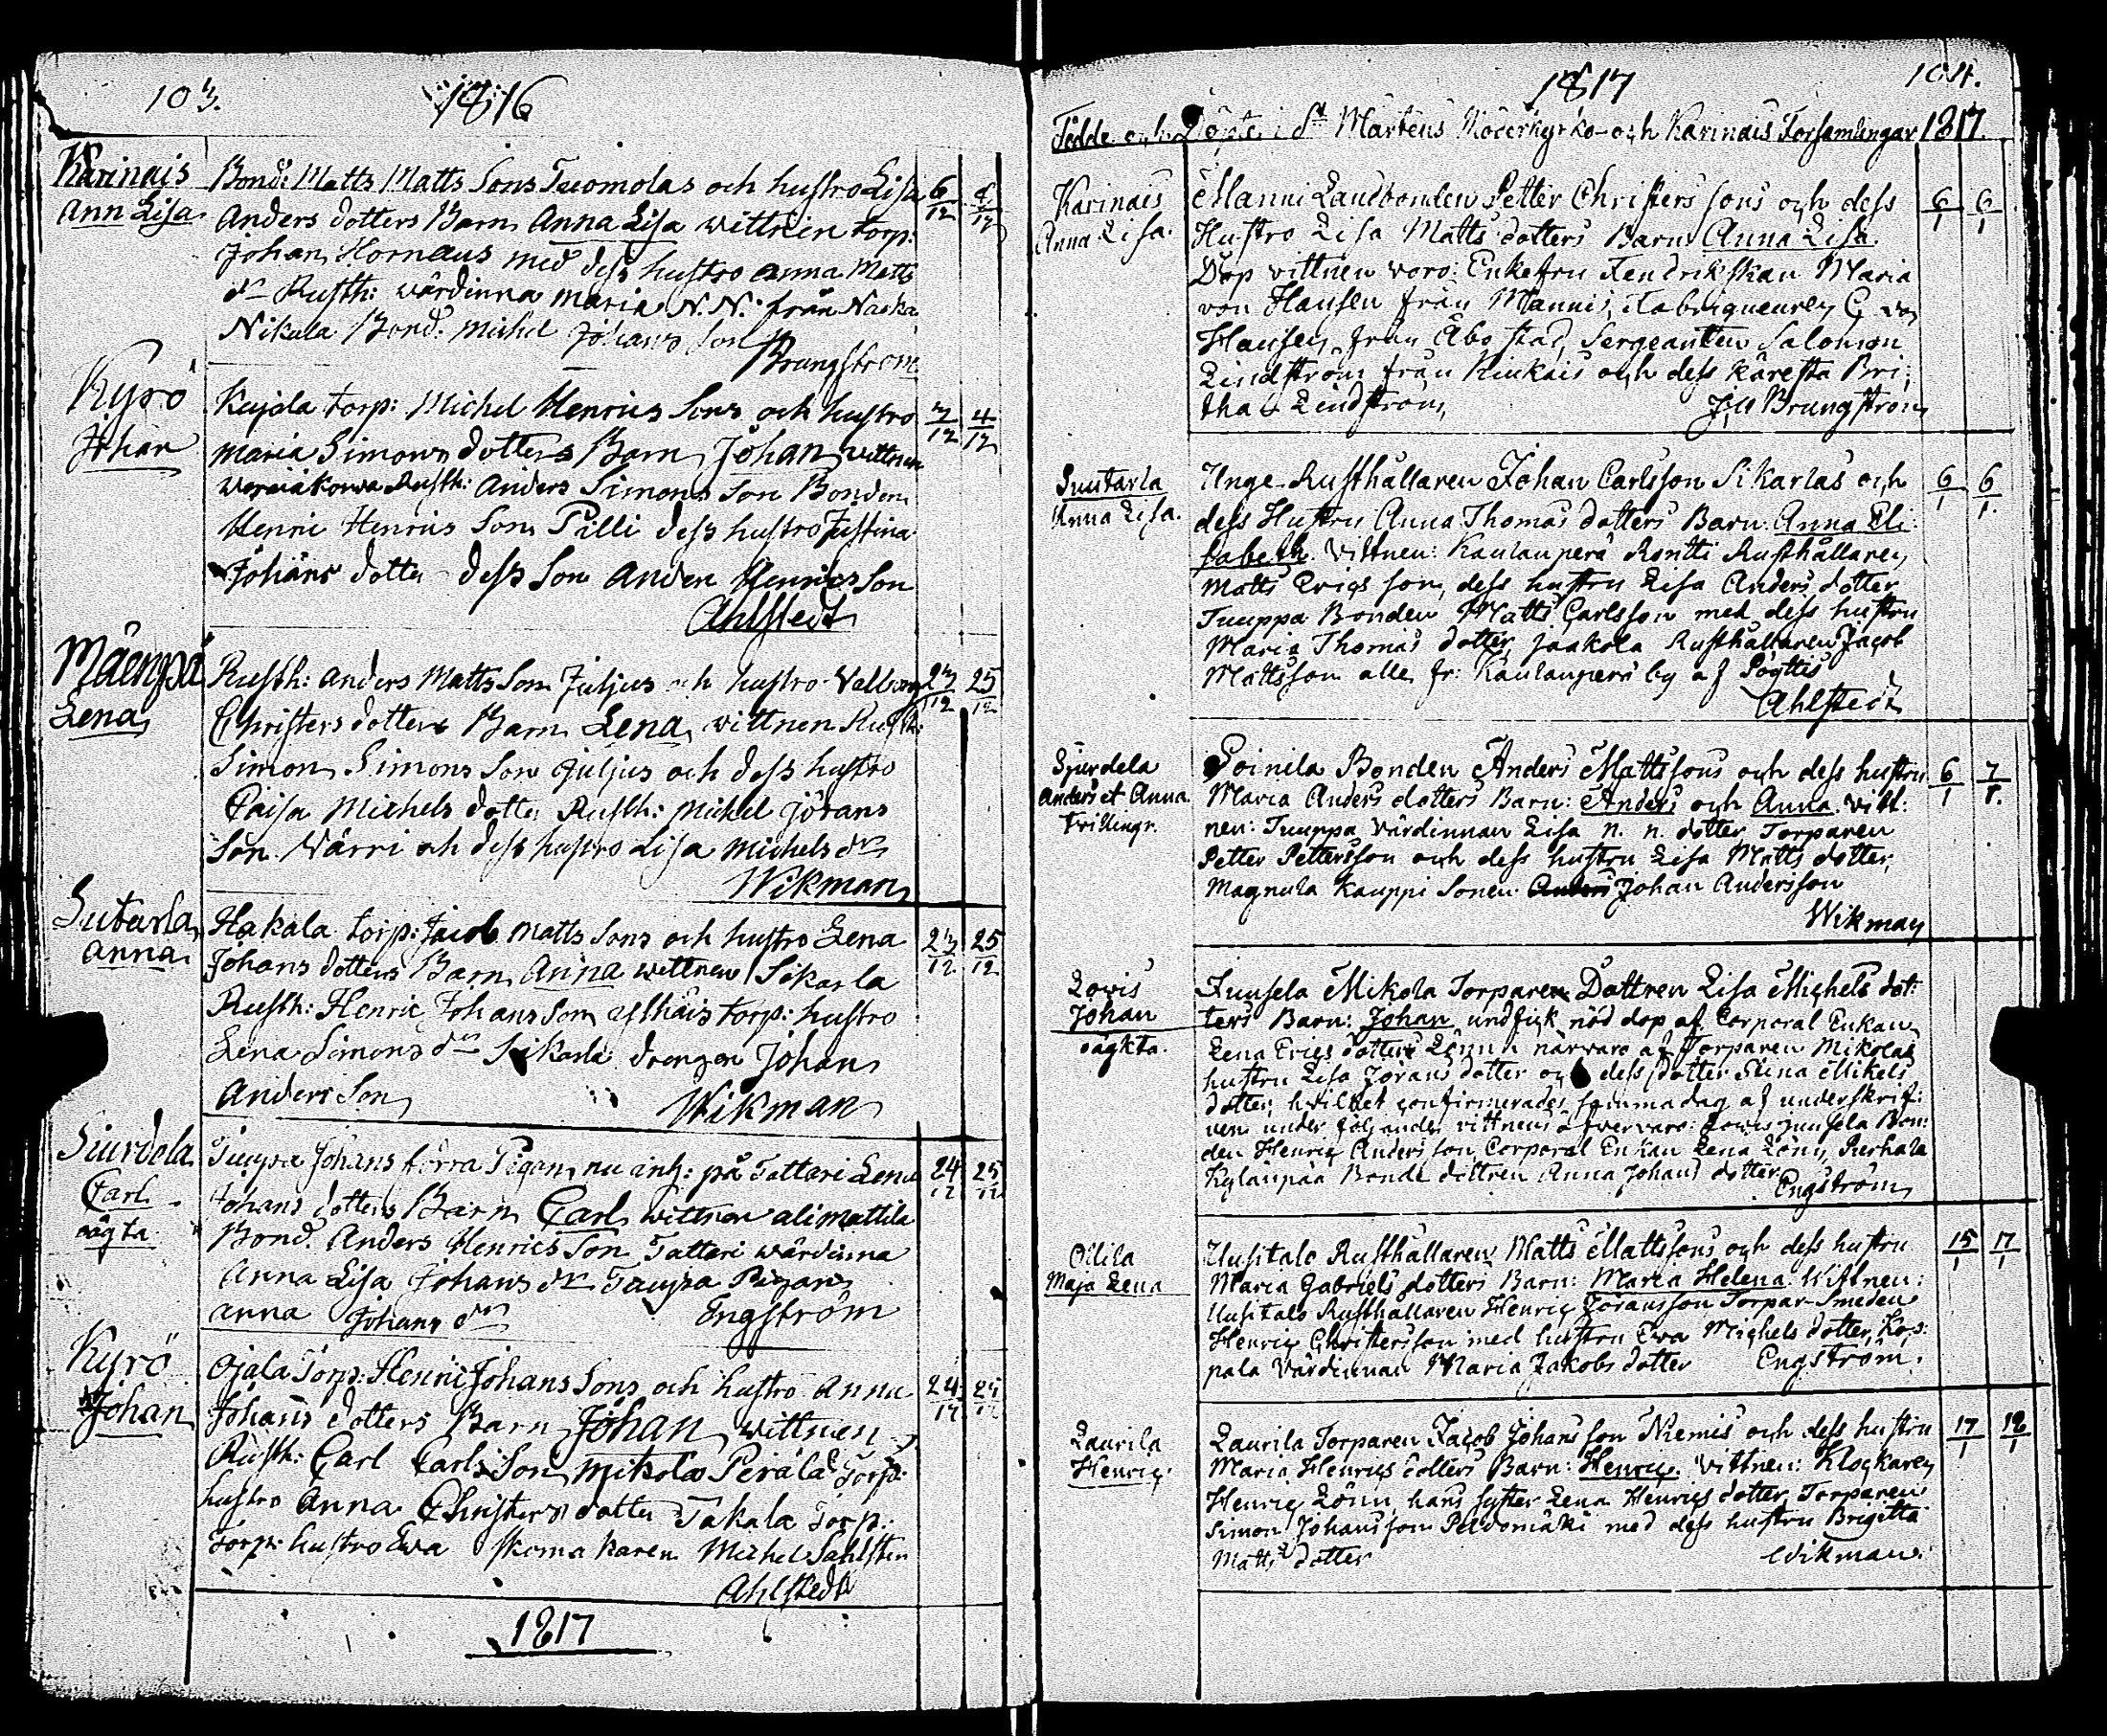 103.
1816
Karinais
Ann Lisa
Bond: Matts Matts Sons Tuomolas och hustro Lisa
Anders dotters Barn Anna Lisa wittnen torp:
Johan Hornaus med dess hustro Anna Matts
dr Rusth: wärdinna Maria N. N. från Naska
Nikula Bond: Michel Johans Son
Brungstrom
6/12
Kyrö
Johan
Kujala torp: Michel Henrics Sons och hustro
Maria Simons dotters Barn Johan wittnen
Rusth: Anders Simons Son Bonden
Henric Henrics Son Pilli dess hustro Justina
Johans dotter dess Son Anders Henrics Son
Ahlstedt
3/12 4/12
Mäenpä
Lena
Rusth: Anders Matts Son Juljus och hustro Valborg
Christers dotters Barn Lena wittnen Rusth:
Simon Simons Son Juljus och dess hustro
Caisa Michels dotter Rusth: Michel Jörans
Son Värri och dess hustro Lisa Michels dr
Wikman
23/12 25/12
Sutarla
Anna
Hakala torp: Jacob Matts Sons och hustro Lena
Johans dotters Barn Anna wittnen Sikarla
Rusth: Henric Johans Son torp: hustro
Lena Simons dr Sikarla drengen Johan
Anders Son
Wikman
23/12 25/12
Siurdela
Carl
oägta
Tuupa Johans förra Pigan nu inh: på Tattari Lena
Johans dotters Barn Carl wittnen alimattila
Bond: Anders Henrics Son Tattari wärdinna
Anna Lisa Johans dr Tuupa Pigan
Anna Johans dr
Engström
24/12 25/12
Kyrö
Johan
Ojala Torp: Henric Johans Sons och hustro Anna
Johans dotters Barn Johan wittnen
Rusth: Carl Carls Son Mikola Perälä Torp:
hustro Anna Christers dotter Takala Torp:
Torp: hustro Ewa Skomakaren Michel Sahlsten
Ahlstedt
24/12 25/12
1817
1817
104.
Födde och Döpte i St Martens Moderkyrko- och Karinais Forsamlingar 1817.
Karinais
Anna Lisa.
Manni Landbonden Petter Christers sons och dess
Hustro Lisa Matts dotters Barn Anna Lisa.
Dop vittnen voro: Enkefru Fendrikskan Maria
von Hausen från Mannis, Fabriqueuren C. von
Hausen från Åbo stad, Sergeanten Salomon
Lindström från Kiukais och dess käresta Bri-
tha Lindström,
Brungström
6/1 6/1
Suutarla
Anna Lisa.
Unge Rusthållaren Johan Carlsson Sikarlas och
dess Hustru Anna Thomas dotters Barn: Anna Eli-
sabeth. Vittnen: Kaulanperä Rontti Rusthållaren
Matts Erics son, dess hustru Lisa Anders dotter,
Tuuppa Bonden Matts Carlsson med dess hustru
Maria Thomas dotter, Jaakola Rusthållaren Jacob
Mattsson alle fr: Kaulanperä by af Pöyttis
Ahlstedt
6/1 6/1.
Sjurdela
Anders et Anna
Tvillingr.
Soinila Bonden Anders Mattssons och dess hustru
Maria Anders dotters Barn: Anders och Anna. Vitt-
nen: Tuuppa Värdinnan Lisa n. n. dotter Torparen
Petter Pettersson och dess hustru Lisa Matts dotter,
Magnula Kauppi Sonen Anders Johan Andersson
Wikman
6/1 7/1.
Lowis
Johan
oägkta.
Juusela Mikola Torparen Dottren Lisa Michels dot-
ters Barn: Johan undfick nöd dop af Corporal Enkan
Lena Erics dotter Lönn i närvaro af Torparen Mikolas
hustru Lisa Jörans dotter och dess dotter Stina Mikels
dotter, hvilket confirmerades samma dag af underskrif-
ven under följande vittnens öfvervaro: Lowis Juusela Bon-
den Henric Anders son Corporal Enkan Lena Lönn, Pierhala
Kylänpää Bonde dottren Anna Johans dotter
Engström
Oilila
Maja Lena
Uusitalo Rusthållaren Matts Mattssons och dess hustru
Maria Gabriels dotters Barn: Maria Helena. Wittnen:
Uusitalo Rusthållaren Henric Göransson Torpar-Smeden
Henric Christersson med hustru Ewa Michels dotter, Kop-
pala Värdinnan Maria Jakobs dotter Engström.
15/1 17/1
Laurila
Henric.
Laurila Torparen Jacob Johans son Niemis och dess hustru
Maria Henrics dotters Barn: Henric. Vittnen: Klockaren
Henric Lönn, hans syster Lena Henrics dotter, Torparen
Simon Johansson Peldomäki med dess hustru Brigitta
Matts dotter
Wikman.
17/1 18/1